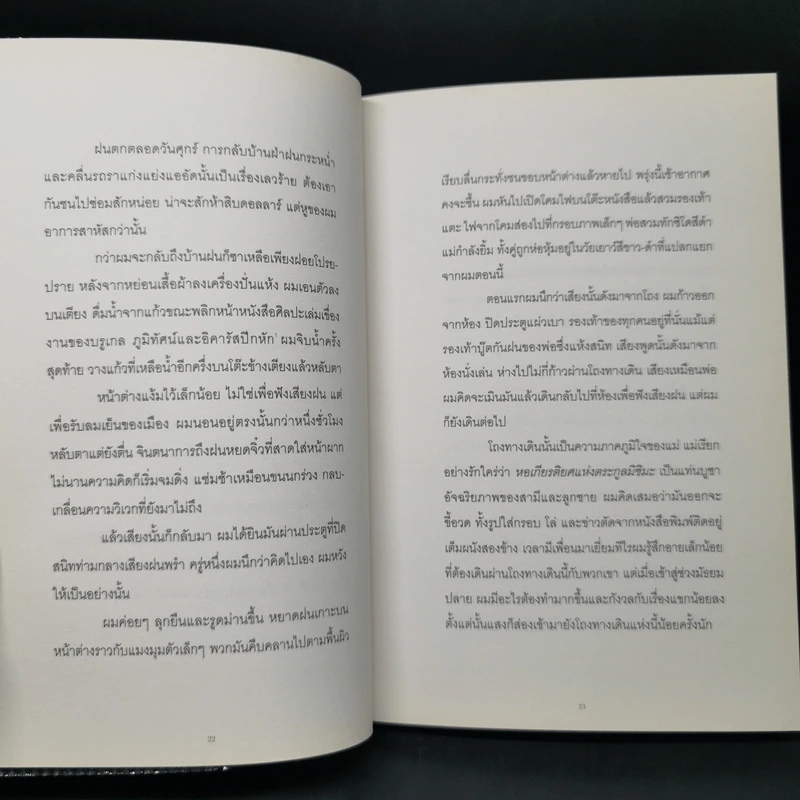 ฝนตกตลอดวันศุกร์ การกลับบ้านฝ่าฝนกระหน่ำ
และคลื่นรถราแก่งแย่งแออัดนั้นเป็นเรื่องเลวร้าย ต้องเอา
กันชนไปซ่อมสักหน่อย น่าจะสักห้าสิบดอลลาร์ แต่หูของผม
อาการสาหัสกว่านั้น
กว่าผมจะกลับถึงบ้านฝนก็ซาเหลือเพียงฝอยโปรย-
ปราย หลังจากหย่อนเสื้อผ้าลงเครื่องปั่นแห้ง ผมเอนตัวลง
บนเตียง ดื่มน้ำจากแก้วขณะพลิกหน้าหนังสือศิลปะเล่มเขื่อง
งานของบรูเกล ภูมิทัศน์และอิคารัสปีกหัก' ผมจิบน้ำครั้ง
สุดท้าย วางแก้วที่เหลือน้ำอีกครึ่งบนโต๊ะข้างเตียงแล้วหลับตา
หน้าต่างแง้มไว้เล็กน้อย ไม่ใช่เพื่อฟังเสียงฝน แต่
เพื่อรับลมเย็นของเมือง ผมนอนอยู่ตรงนั้นกว่าหนึ่งชั่วโมง
หลับตาแต่ยังตื่น จินตนาการถึงฝนหยดจิ๋วที่สาดใส่หน้าผาก
ไม่นานความคิดก็เริ่มจมดิ่ง แช่มช้าเหมือนขนนกร่วง กลบ-
เกลื่อนความวิเวกที่ยังมาไม่ถึง
แล้วเสียงนั้นก็กลับมา ผมได้ยินมันผ่านประตูที่ปิด
สนิทท่ามกลางเสียงฝนพรำ ครู่หนึ่งผมนึกว่าคิดไปเอง ผมหวัง
ให้เป็นอย่างนั้น
ผมค่อยๆ ลุกยืนและรูดม่านขึ้น หยาดฝนเกาะบน
หน้าต่างราวกับแมงมุมตัวเล็กๆ พวกมันคืบคลานไปตามพื้นผิว
22
เรียบลื่นกระทั่งชนขอบหน้าต่างแล้วหายไป พรุ่งนี้เช้าอากาศ
คงจะชื้น ผมหันไปเปิดโคมไฟบนโต๊ะหนังสือแล้วสวมรองเท้า
แตะ ไฟจากโคมส่องไปที่กรอบภาพเล็กๆ พ่อสวมทักซิโดสีดำ
แม่กำลังยิ้ม ทั้งคู่ถูกห่อหุ้มอยู่ในวัยเยาว์สีขาว-ดำที่แปลกแยก
จากผมตอนนี้
ตอนแรกผมนึกว่าเสียงนั้นดังมาจากโถง ผมก้าวออก
จากห้อง ปิดประตูแผ่วเบา รองเท้าของทุกคนอยู่ที่นั่นแม้แต่
รองเท้าบู๊ตกันฝนของพ่อซึ่งแห้งสนิท เสียงพูดนั้นดังมาจาก
ห้องนั่งเล่น ห่างไปไม่กี่ก้าวผ่านโถงทางเดิน เสียงเหมือนพ่อ
ผมคิดจะเมินมันแล้วเดินกลับไปที่ห้องเพื่อฟังเสียงฝน แต่ผม
ก็ยังเดินต่อไป
โถงทางเดินนั้นเป็นความภาคภูมิใจของแม่ แม่เรียก
อย่างรักใคร่ว่า หอเกียรติยศแห่งตระกูลมิชิมะ เป็นแท่นบูชา
อัจฉริยภาพของสามีและลูกชาย ผมคิดเสมอว่ามันออกจะ
ขี้อวด ทั้งรูปใส่กรอบ โล่ และข่าวตัดจากหนังสือพิมพ์ติดอยู่
เต็มผนังสองข้าง เวลามีเพื่อนมาเยี่ยมทีไรผมรู้สึกอายเล็กน้อย
ที่ต้องเดินผ่านโถงทางเดินนี้กับพวกเขา แต่เมื่อเข้าสู่ช่วงมัธยม
ปลาย ผมมีอะไรต้องทำมากขึ้นและกังวลกับเรื่องแขกน้อยลง
ตั้งแต่นั้นแสงก็ส่องเข้ามายังโถงทางเดินแห่งนี้น้อยครั้งนัก
23